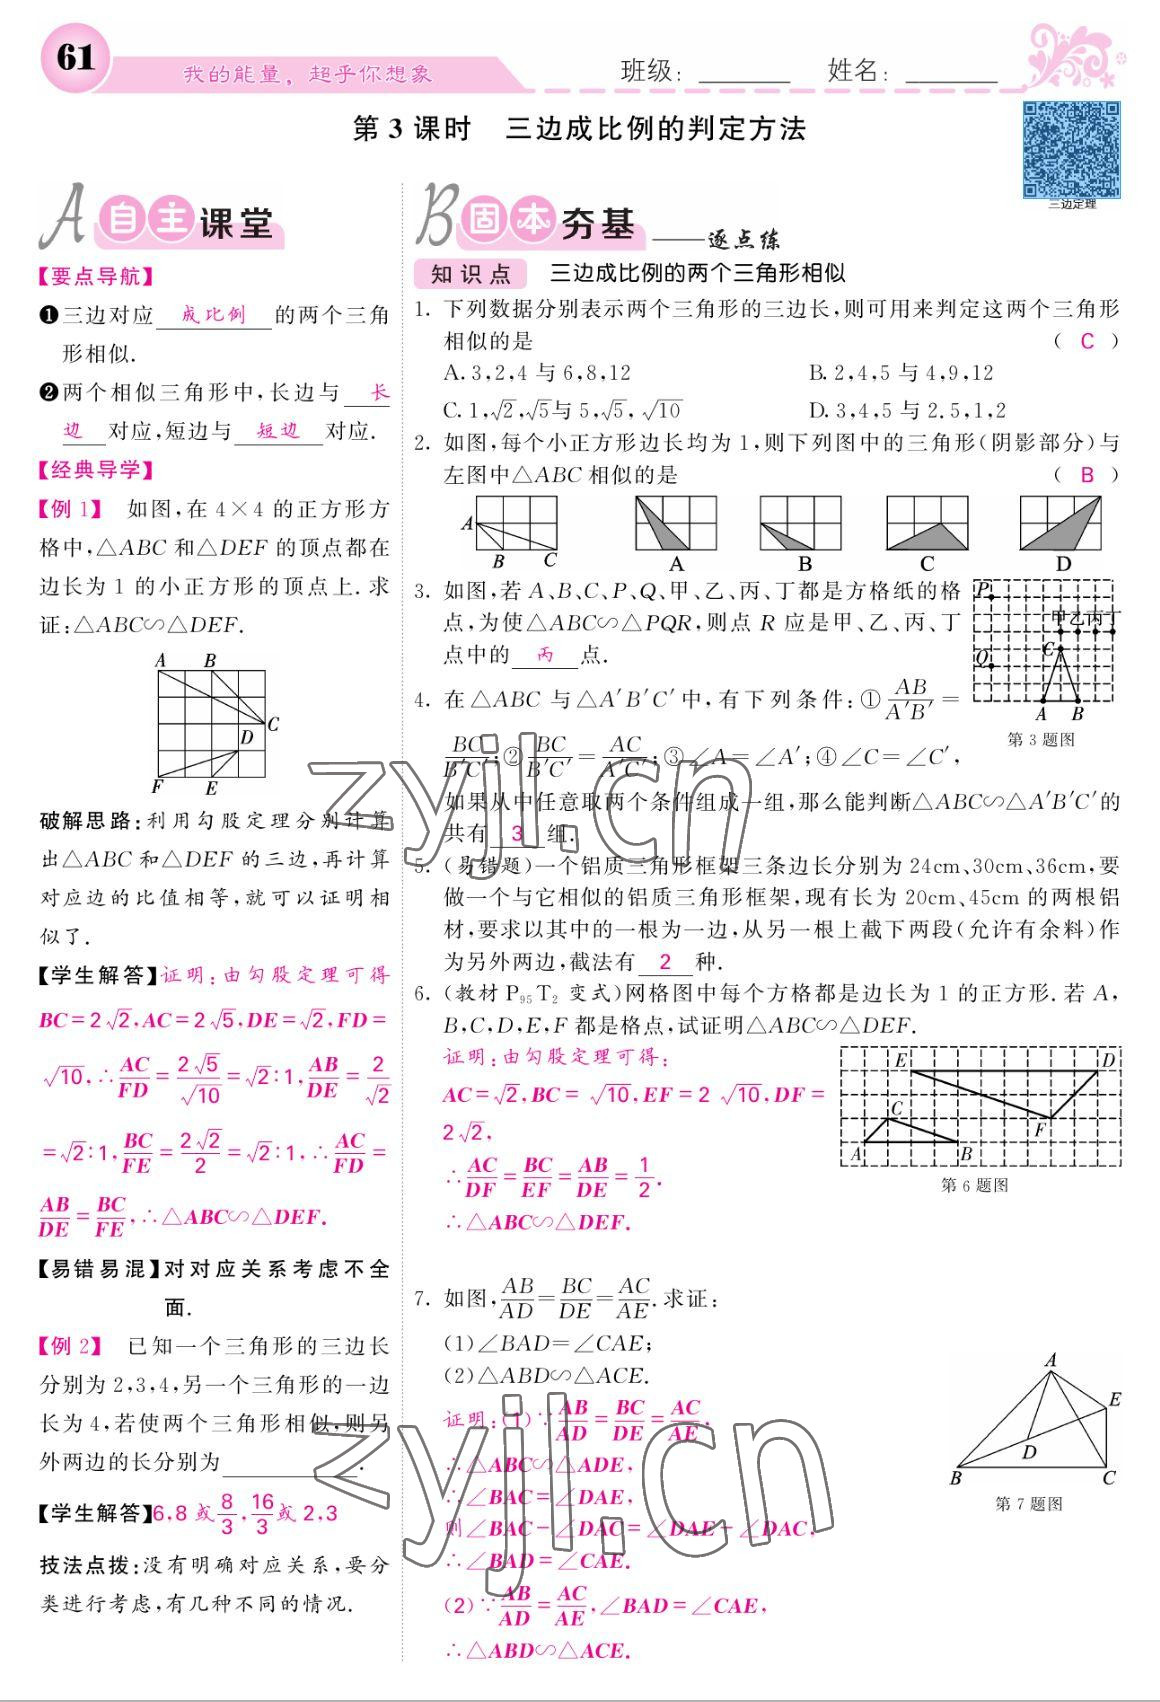 61
我的能量，超乎你想象
班级：______ 姓名：______
第 3 课时 三边成比例的判定方法
三边定理
A 自主课堂
【要点导航】
❶三边对应 成比例 的两个三角
形相似.
❷两个相似三角形中,长边与 长
边 对应,短边与 短边 对应.
【经典导学】
【例 1】 如图,在 4×4 的正方形方
格中,△ABC 和△DEF 的顶点都在
边长为 1 的小正方形的顶点上. 求
证:△ABC∽△DEF.
A B
C
D
F E
破解思路:利用勾股定理分别计算
出△ABC 和△DEF 的三边,再计算
对应边的比值相等,就可以证明相
似了.
【学生解答】证明:由勾股定理可得
BC=2√2,AC=2√5,DE=√2,FD=
√10,∴AC/FD=2√5/√10=√2:1,AB/DE=2/√2
=√2:1,BC/FE=2√2/2=√2:1,∴AC/FD=
AB/DE=BC/FE,∴△ABC∽△DEF.
【易错易混】对对应关系考虑不全
面.
【例 2】 已知一个三角形的三边长
分别为 2,3,4,另一个三角形的一边
长为 4,若使两个三角形相似,则另
外两边的长分别为______.
【学生解答】6,8 或 8/3,16/3 或 2,3
技法点拨:没有明确对应关系,要分
类进行考虑,有几种不同的情况.
B 固本夯基 ——逐点练
知识点 三边成比例的两个三角形相似
1. 下列数据分别表示两个三角形的三边长,则可用来判定这两个三角形
相似的是 ( C )
A. 3,2,4 与 6,8,12 B. 2,4,5 与 4,9,12
C. 1,√2,√5与 5,√5, √10 D. 3,4,5 与 2.5,1,2
2. 如图,每个小正方形边长均为 1,则下列图中的三角形(阴影部分)与
左图中△ABC 相似的是 ( B )
A B C A B C D
3. 如图,若 A、B、C、P、Q、甲、乙、丙、丁都是方格纸的格
点,为使△ABC∽△PQR,则点 R 应是甲、乙、丙、丁
点中的 丙 点.
P
甲乙丙丁
C
Q
A B
第 3 题图
4. 在△ABC 与△A′B′C′中,有下列条件:①AB/A′B′=
BC/B′C′;②BC/B′C′=AC/A′C′;③∠A=∠A′;④∠C=∠C′,
如果从中任意取两个条件组成一组,那么能判断△ABC∽△A′B′C′的
共有 3 组.
5. (易错题)一个铝质三角形框架三条边长分别为 24cm、30cm、36cm,要
做一个与它相似的铝质三角形框架,现有长为 20cm、45cm 的两根铝
材,要求以其中的一根为一边,从另一根上截下两段(允许有余料)作
为另外两边,截法有 2 种.
6. (教材 P₉₅T₂ 变式)网格图中每个方格都是边长为 1 的正方形. 若 A,
B,C,D,E,F 都是格点,试证明△ABC∽△DEF.
证明:由勾股定理可得:
AC=√2,BC= √10,EF=2 √10,DF=
2√2,
∴AC/DF=BC/EF=AB/DE=1/2.
∴△ABC∽△DEF.
E D
C
F
A B
第 6 题图
7. 如图,AB/AD=BC/DE=AC/AE.求证:
(1)∠BAD=∠CAE;
(2)△ABD∽△ACE.
证明:(1)∵AB/AD=BC/DE=AC/AE.
∴△ABC∽△ADE,
∴∠BAC=∠DAE,
则∠BAC-∠DAC=∠DAE-∠DAC,
∴∠BAD=∠CAE.
(2)∵AB/AD=AC/AE,∠BAD=∠CAE,
∴△ABD∽△ACE.
A
E
D
B C
第 7 题图
zyjl.cn
zyjl.cn